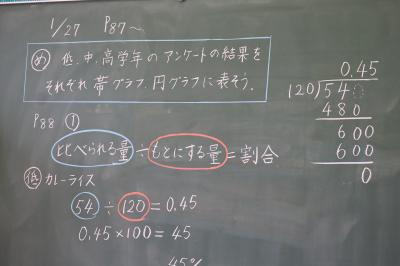 1/27 P87〜
め 低、中、高学年のアンケートの結果を
それぞれ帯グラフ、円グラフに表そう。
P88 ①
比べられる量÷もとにする量=割合
低 カレーライス
54÷120=0.45
0.45×100=45
45%
0.45
120)54
480
600
600
0